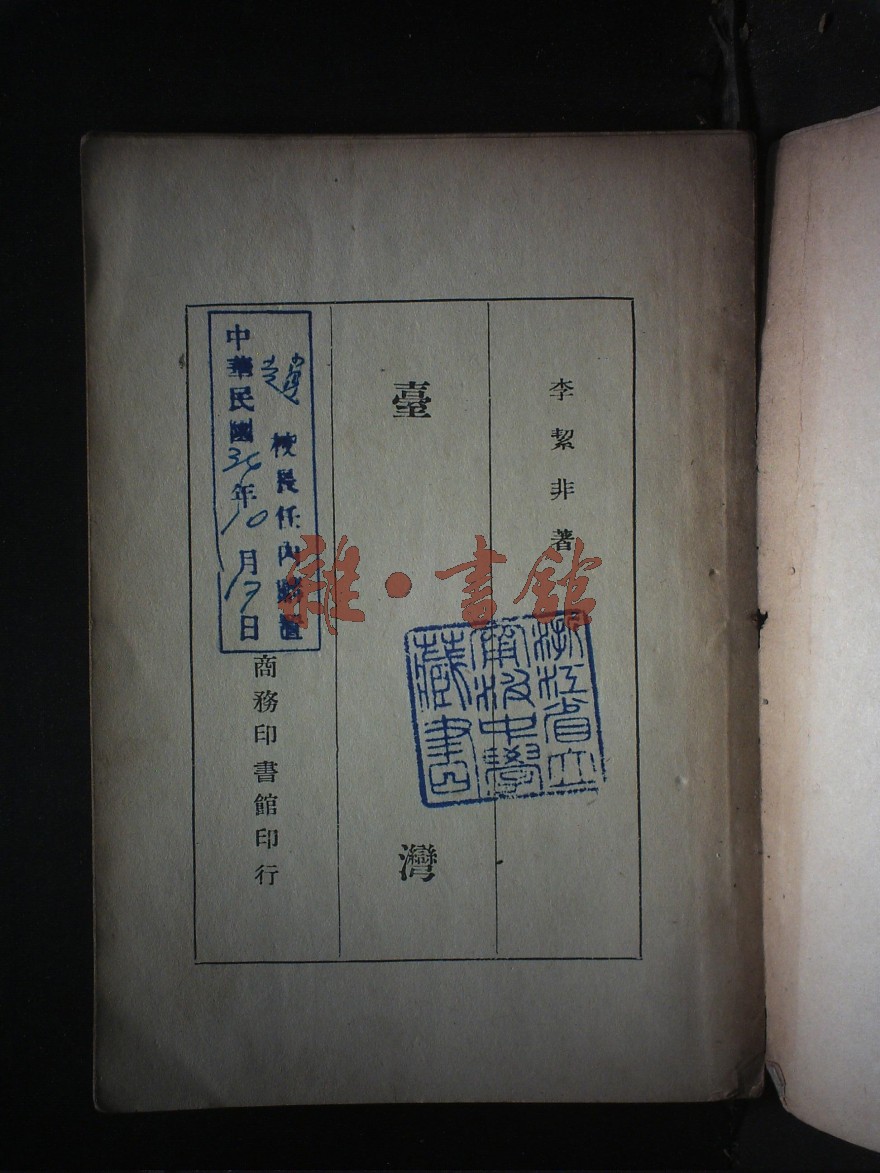 李絜非著
臺灣
商務印書館印行
校長任內購置
中華民國36年10月 日
浙江省立
高級中學
藏書
雜·書館